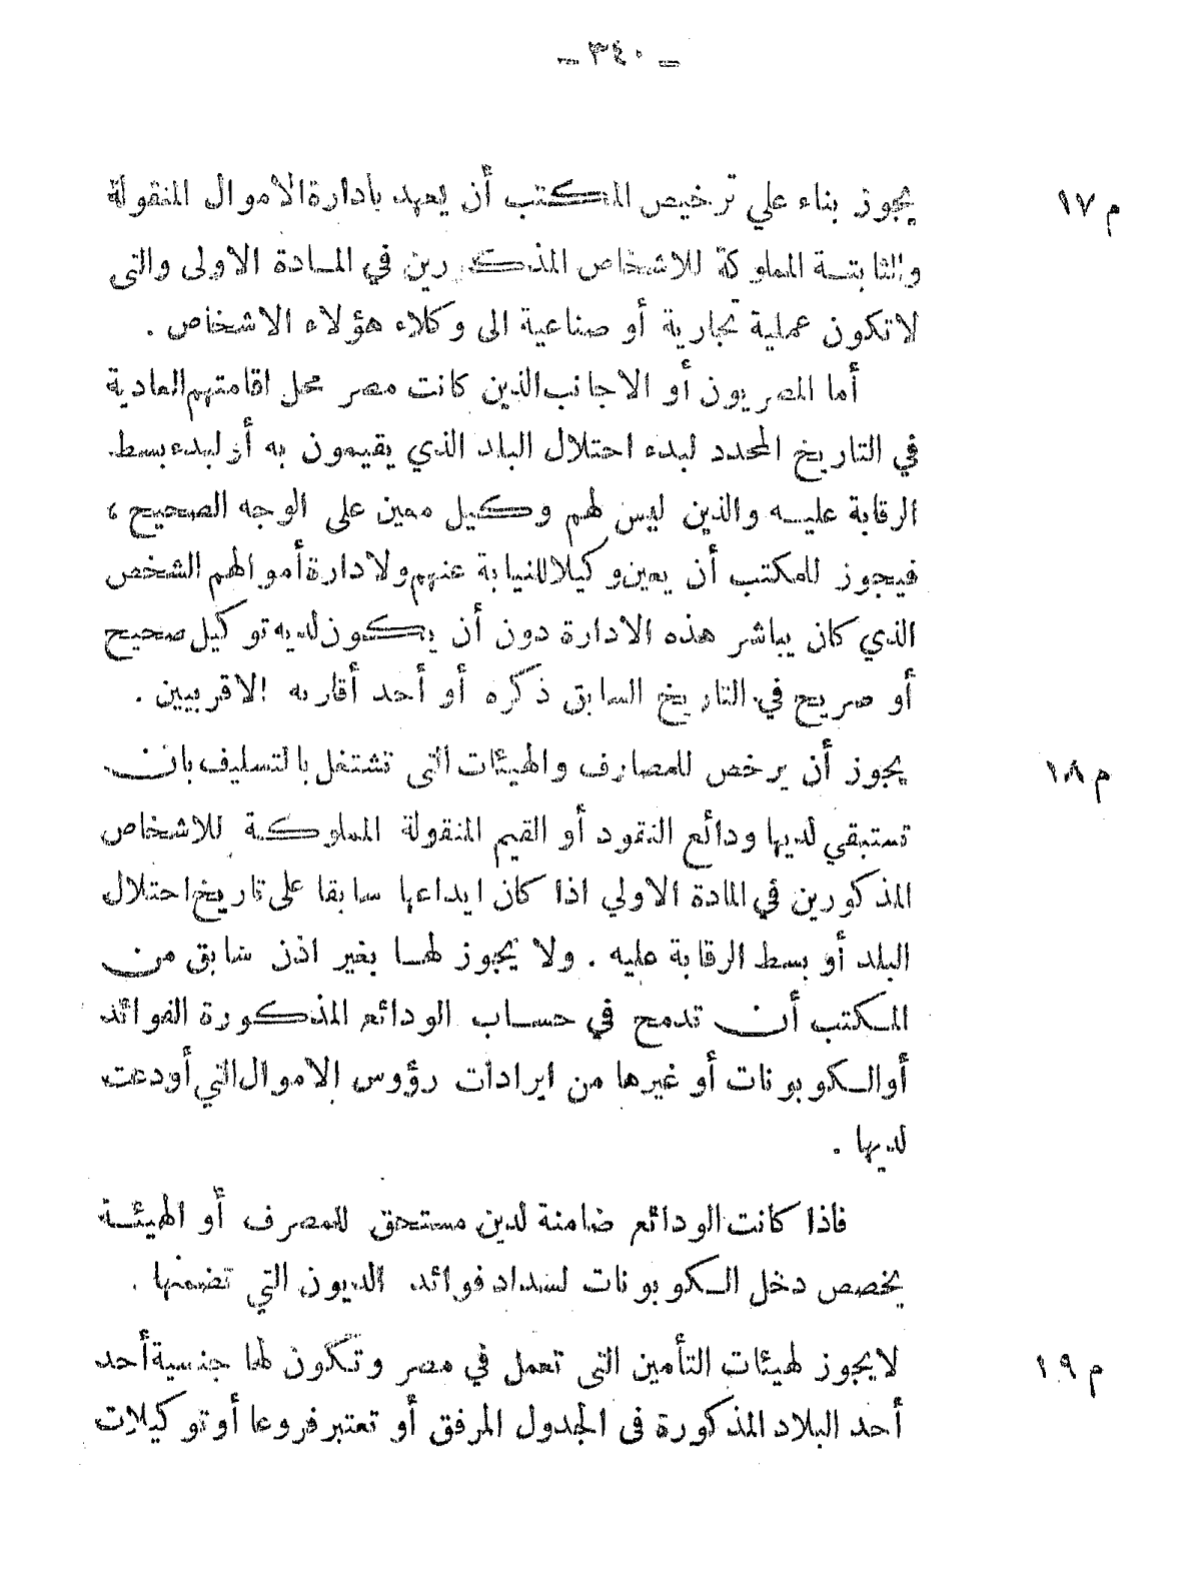 ـ ٣٤٠ ـ
م ١٧ يجوز بناء علي ترخيص المكتب أن يعهد بادارة الاموال المنقولة
والثابتة المملوكة للاشخاص المذكورين في المادة الاولى والتى
لاتكون عملية تجارية أو صناعية الى وكلاء هؤلاء الاشخاص .
أما المصريون أو الاجانب الذين كانت مصر محل اقامتهم العادية
في التاريخ المحدد لبدء احتلال البلد الذي يقيمون به أو لبدء بسط
الرقابة عليه والذين ليس لهم وكيل معين على الوجه الصحيح ،
فيجوز للمكتب أن يعين وكيلا للنيابة عنهم ولادارة أموالهم الشخص
الذي كان يباشر هذه الادارة دون أن يكون لديه توكيل صحيح
أو صريح في التاريخ السابق ذكره أو أحد أقاربه الاقربيين .
م ١٨ يجوز أن يرخص للمصارف والهيئات التى تشتغل بالتسليف بان
تستبقي لديها ودائع النقود أو القيم المنقولة المملوكة للاشخاص
المذكورين في المادة الاولي اذا كان ايداعها سابقا على تاريخ احتلال
البلد أو بسط الرقابة عليه . ولا يجوز لها بغير اذن سابق من
المكتب أن تدمج في حساب الودائع المذكورة الفوائد
أوالكوبونات أو غيرها من ايرادات رؤوس الاموال التي أودعت
لديها .
فاذا كانت الودائع ضامنة لدين مستحق للمصرف أو الهيئة
يخصص دخل الكوبونات لسداد فوائد الديون التي تضمنها .
م ١٩ لايجوز لهيئات التأمين التى تعمل في مصر وتكون لها جنسية أحد
أحد البلاد المذكورة فى الجدول المرفق أو تعتبر فروعا أوتوكيلات